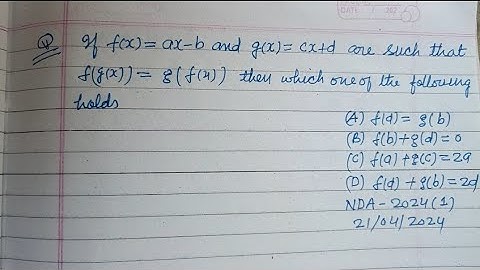 Q. If f(x) = ax-b and g(x) = cx+d are such that
f(g(x)) = g(f(x)) then which one of the following
holds
(A) f(d) = g(b)
(B) f(b)+g(d) = 0
(C) f(a)+g(c) = 2a
(D) f(d)+g(b) = 2d
NDA-2024(1)
21/04/2024